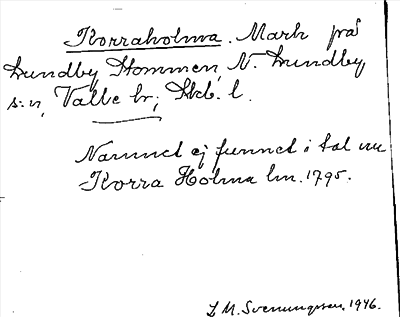 Korraholma. Mark på
Lundby Stommen, N. Lundby
s:n, Valle hr, Skb. l.
Namnet ej funnet i tal nu
Korra Holma lm. 1795.
L M. Svenungsson. 1946.